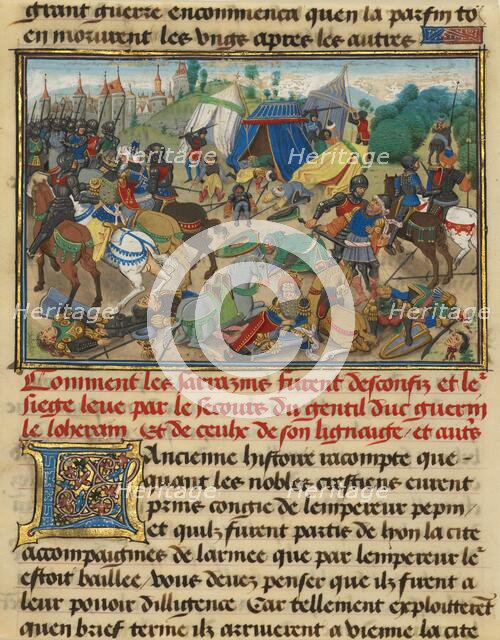 grant guerre encommenca quen la parfin to
en morurent les vngs apres les autres
Heritage Heritage
Heritage
Heritage Heritage
Comment les sarrazins furent desconfiz et le
siege leue par le secours du gentil duc guerin
le loherain, Et de ceulx de son lignaige, et aut's
L Ancienne histoire racompte que
quant les nobles crestiens eurent
prins congie de lempereur pepin,
et quilz furent partis de lyon la cite
accompaignies de larmee que par lempereur le'
estoit baillee, vous deuez penser que ilz firent a
leur pouoir dilligence Car tellement exploitteret
quen brief terme ilz arriuerent a vienne la cite